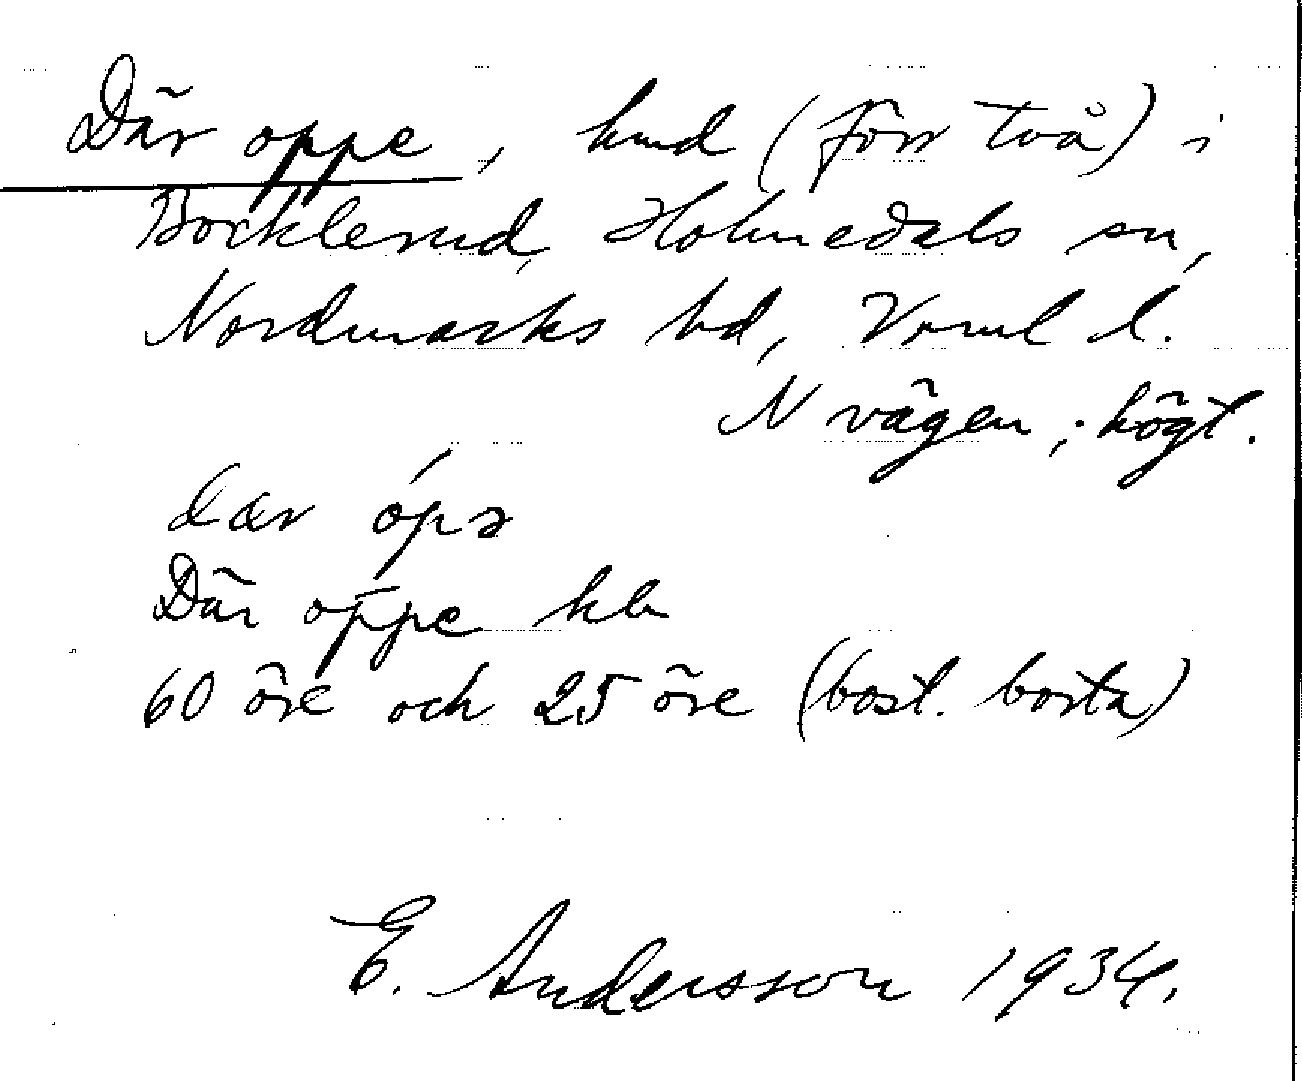 Där oppe, hmd (förr två) i
Bocklerud, Holmedals sn,
Nordmarks hd, Vrml l.
N vägen; högt.
dær ópə
Där oppe hln
60 öre och 25 öre (bost. borta)
E. Andersson 1934.